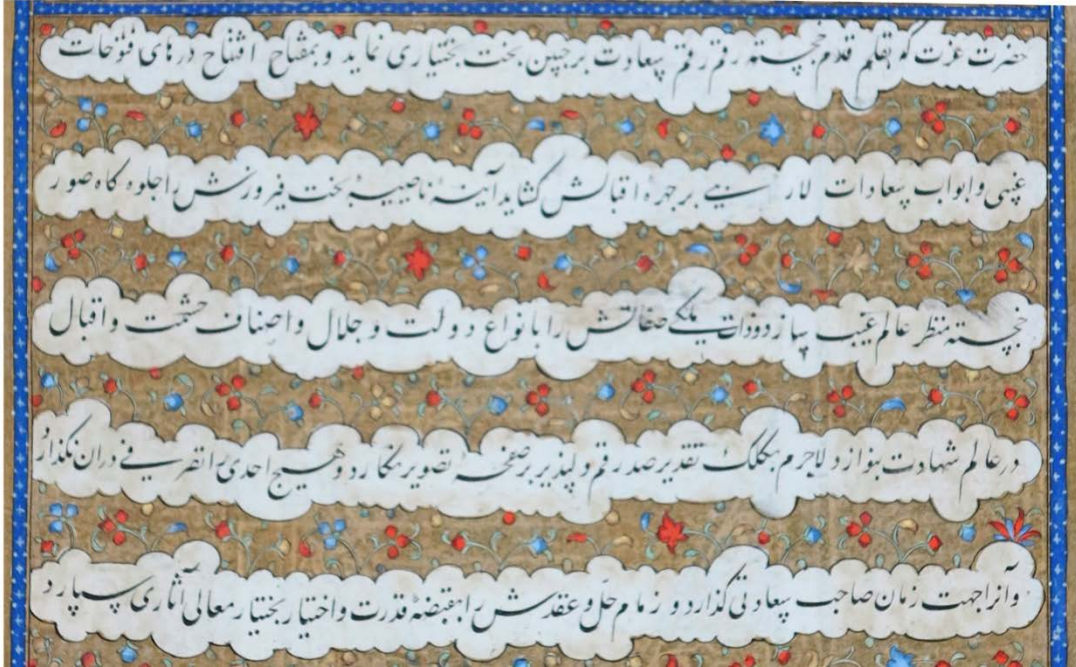 حضرت عزت گو بقلم قدم خجسته رقم رقم سعادت بر جبین بخت بختیاری نماید و بمفتاح افتتاح درهای فتوحات
غیبی و ابواب سعادات لاریبی بر چهره اقبالش گشاید آینه ناصیه بخت فیروزش را جلوه گاه صور
خجسته منظر عالم غیب سازد و ذات ملکی صفاتش را بانواع دولت و جلال و اصناف حشمت و اقبال
در عالم شهادت بنوازد لاجرم بکلک تقدیر صد رقم دلپذیر بر صفحه تصویر نگارد و هیچ احدی را تصرفی در آن نگذارد
و آنرا جهت زمان صاحب سعادتی گذارد و زمام حل و عقدش را بقبضه قدرت و اختیار بختیار معالی آثاری سپارد